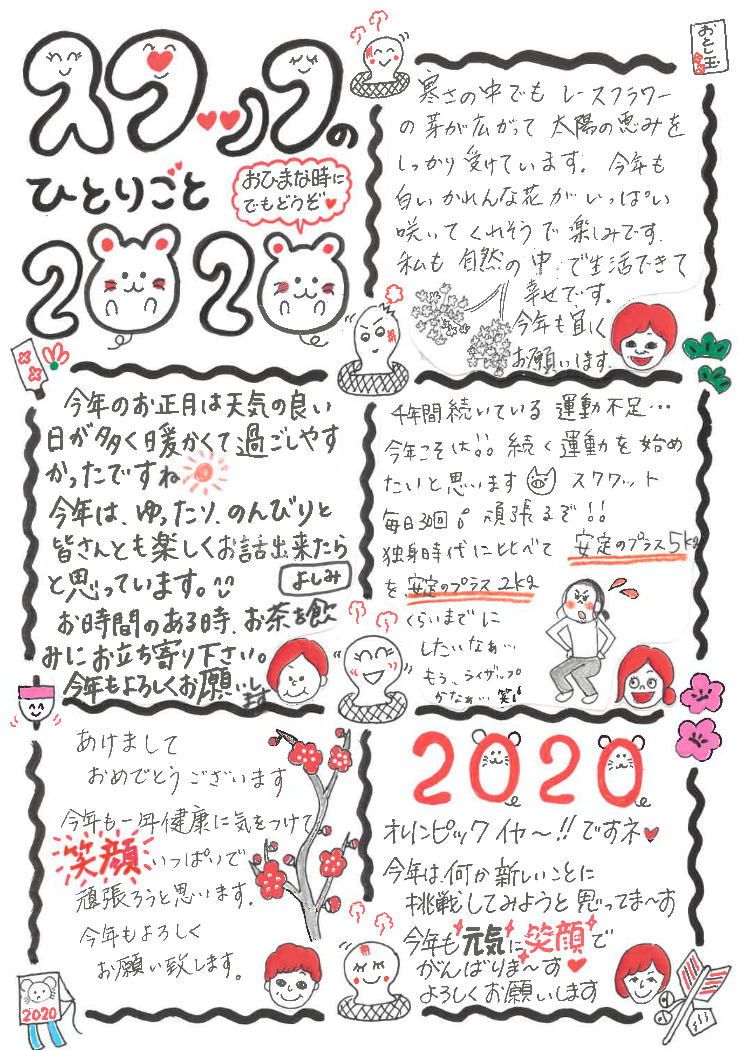 スタッフの
ひとりごと
おひまな時に
でもどうぞ♥
2020
おとし玉
寒さの中でも レースフラワー
の芽が広がって 太陽の恵みを
しっかり受けています。今年も
白いかれんな花が いっぱい
咲いてくれそうで楽しみです。
私も自然の中で生活できて
幸せです。
今年も宜しく
お願います。
今年のお正月は天気の良い
日が多く暖かくて過ごしやす
かったですね
今年は、ゆったり、のんびりと
皆さんとも楽しくお話出来たら
と思っています。
よしみ
お時間のある時、お茶を飲
みにお立ち寄り下さい。
今年もよろしくお願います
千年間続いている 運動不足…
今年こそは!! 続く運動を始め
たいと思います スクワット
毎日30回! 頑張るぞ!!
独身時代にくらべて 安定のプラス5kg
を、安定のプラス2kg
くらいまでに
したいなぁ…
もう、ライザップ
かなぁ…笑!
あけまして
おめでとうございます
今年も一年健康に気をつけて
笑顔いっぱいで
頑張ろうと思います。
今年もよろしく
お願い致します。
2020
オリンピックイヤ〜!!ですネ♥
今年は、何か新しいことに
挑戦してみようと思ってま〜す
今年も元気に笑顔で
がんばりま〜す♥
よろしくお願いします
2020